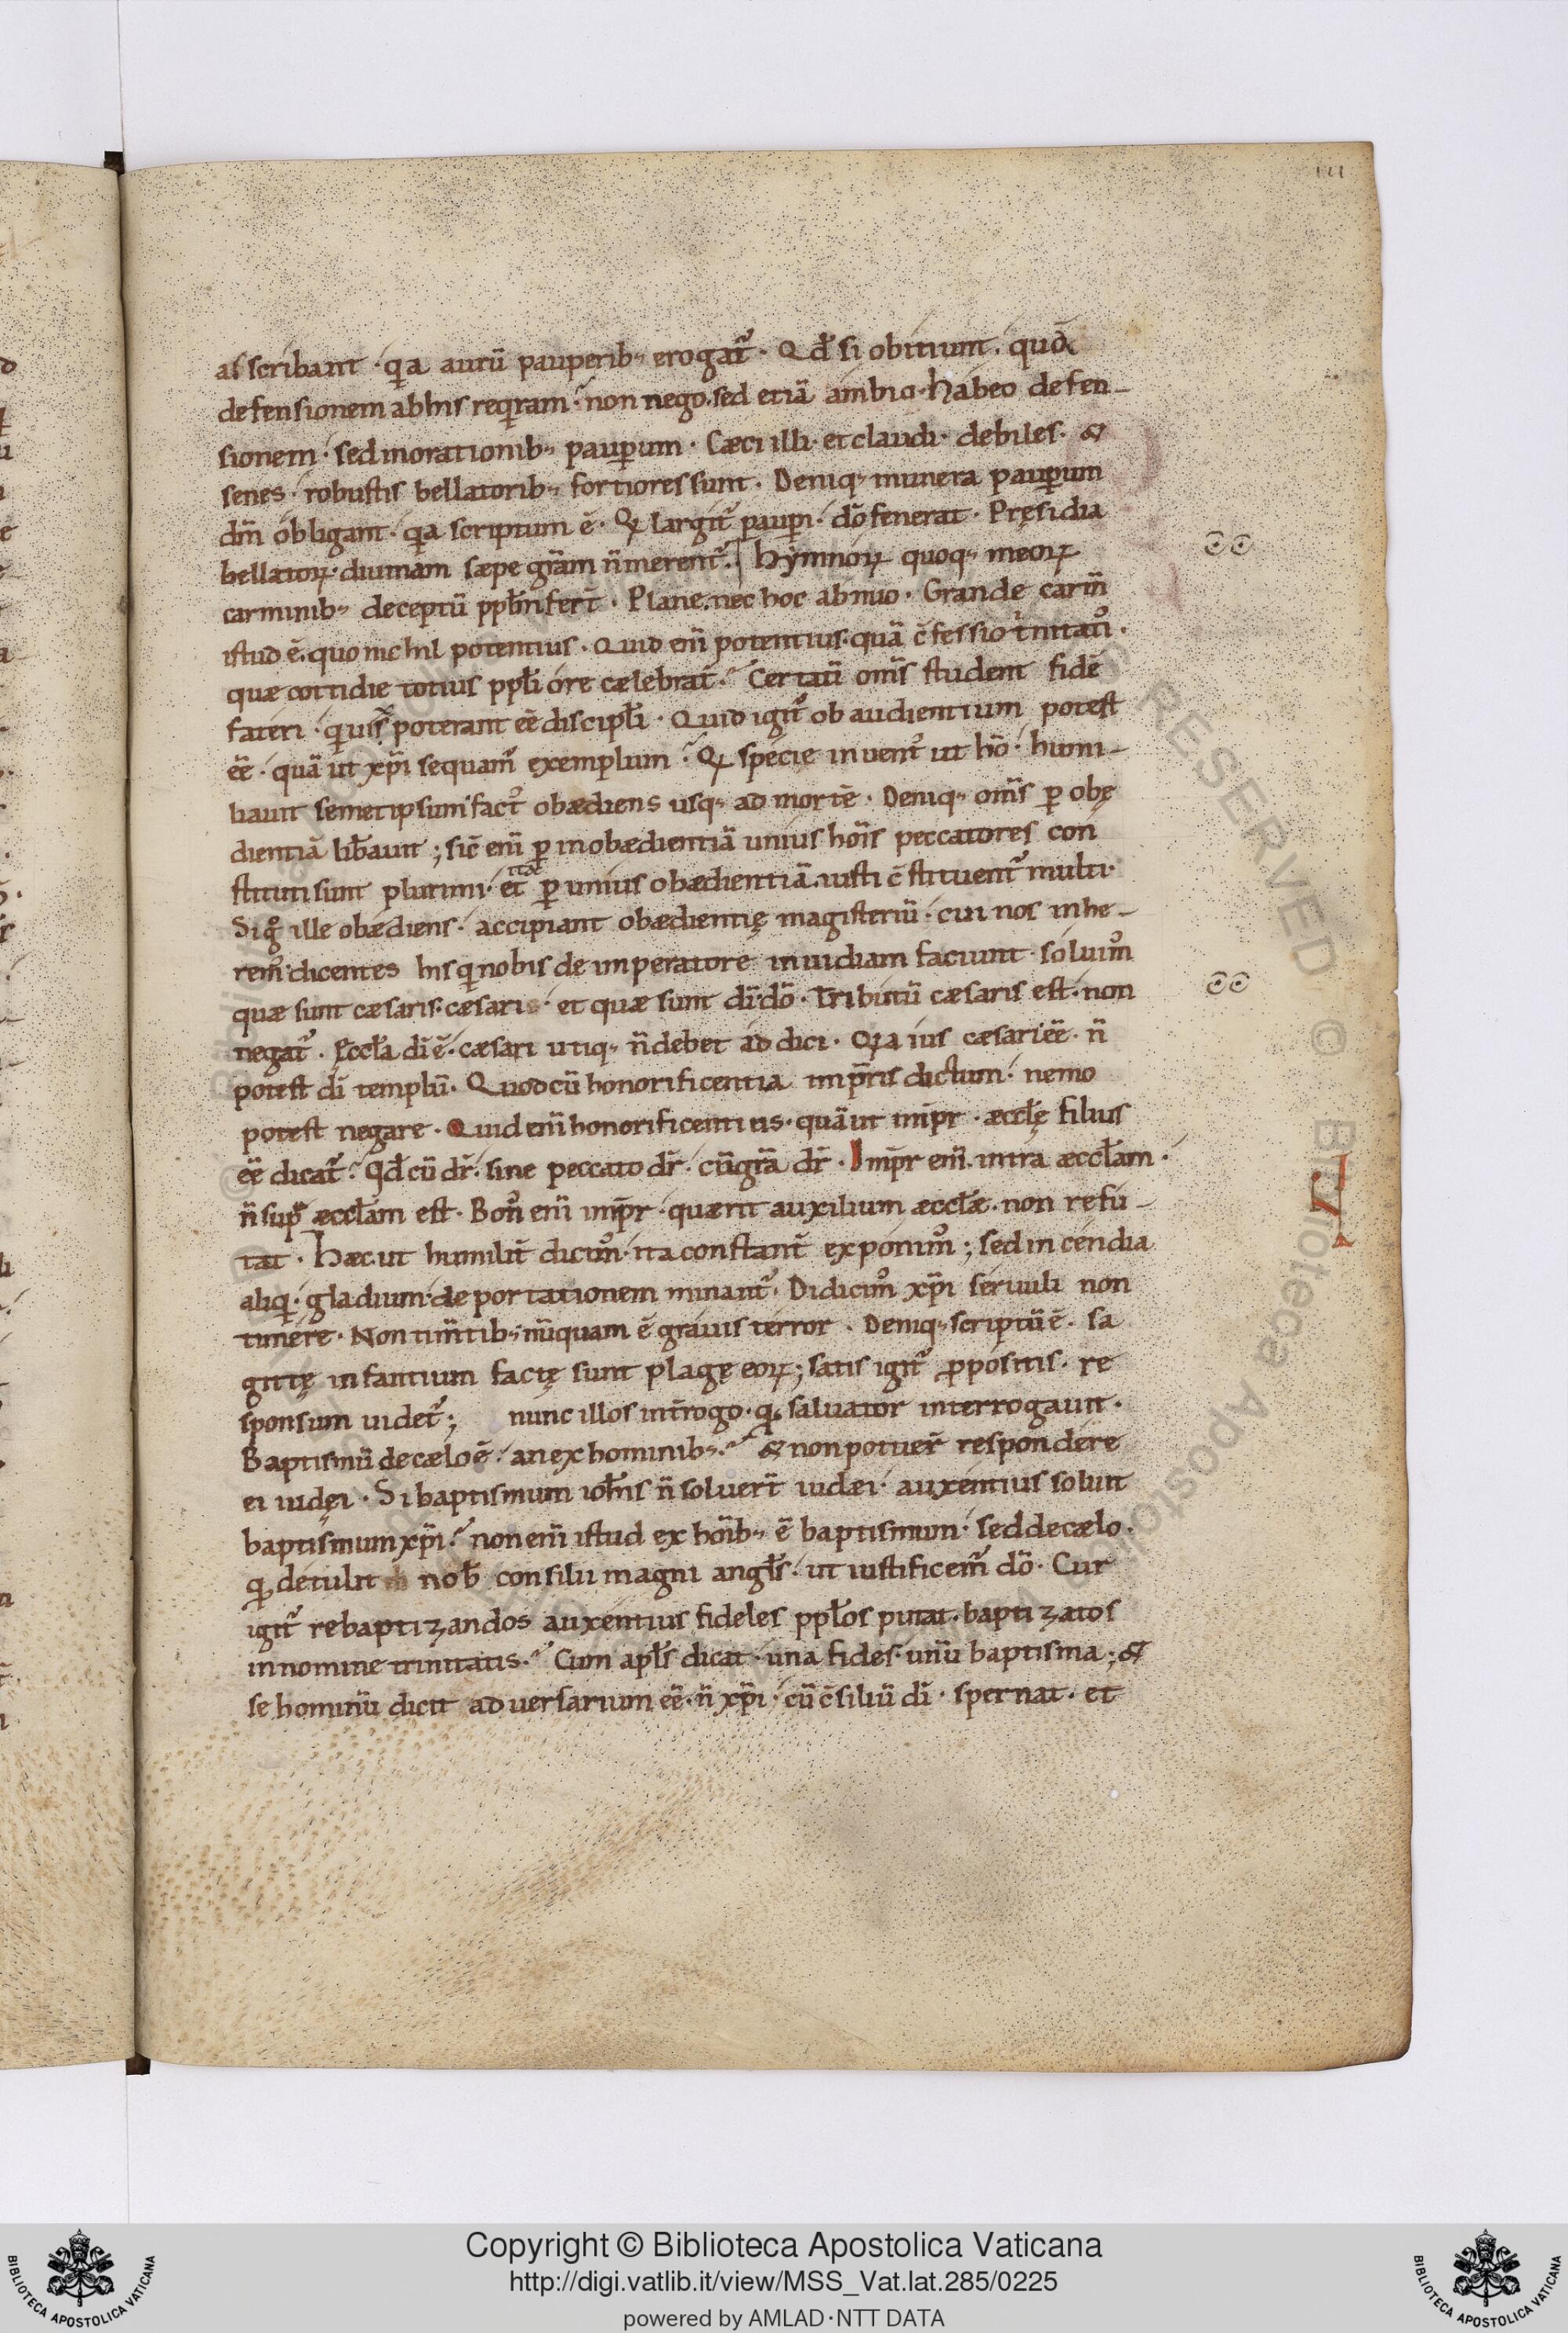 ııı
asscribant · qa aurū pauperib; erogat᷑ · Qd̄ si obitiunt · quod
defensionem ab his reqram · non nego. sed etiā ambio · habeo defen-
sionem · sed in orationib; pauꝑum · Cæci illi · et claudi · debiles · &
senes · robustis bellatorib; fortiores sunt · Deniq; munera pauꝑum
dm̄ obligant · qa scriptum ē · Qi largit᷑ pauꝑi · dō fenerat · Pręsidia
bellatoꝝ · diuinam sæpe gr̄am n̄ merent᷑ · hymnoꝝ quoq; meoꝝ
carminib; deceptū ppl̄m fer̄t · Plane. nec hoc abnuo · Grande carm̄
istud ē. quo nichil potentius · Quid eni̅ potentius. quā c̄fessio t̍nitatıꝰ ·
quæ cottidie totius ppl̄i ore cælebrat᷑ · Certatī om̄s student fidē
fateri · quis poterant eē discipl̄i · Quid igit᷑ obaudientium potest
eē · quā ut xp̄i sequam᷑ exemplum · Qi specie inuentꝰ ut hō · humi-
liauit semetipsum factꝰ obædiens usq; ad mortē · Deniq; om̄s ꝑ obę
dientiā lib̄auit ; sic̄ eni̅ ꝑ inobædientiā unius hoīs peccatores con
stituti sunt plurimi · et ꝑ unius obædientiā. iusti c̄stituent᷑ multi ·
Si g̊ ille obædiens · accipiant obædientię magisteriū · cui nos inhe-
remꝰ dicentes his q nobis de imperatore inuidiam faciunt · soluimꝰ
quæ sunt cæsaris · cæsari · et quæ sunt dī · dō · Tributū cæsaris est · non
negat᷑ · Eccl̄a dī ē · cæsari utiq; n̄ debet addici · Qia ius cæsari eē · n̄
potest dī templū · Quod cū honorificentia imp̄ris dictum · nemo
potest negare · Quid eni̅ honorificentius · quā ut imp̄r · æccl̄ę filius
eē dicat᷑ · Qd̄ cū dr̄ · sine peccato dr̄ · cū gr̄a dr̄ · Imp̄r eni̅ · intra æccl̄am ·
n̄ sup̄ æccl̄am est · Bonꝰ eni̅ imp̄r · quærit auxilium æccl̄æ · non refu-
tat · Hæc ut humilit̄ dicimꝰ · ita constant̄ exponimꝰ ; sed incendia
aliqi · gladium · deportationem minant᷑ · Didicimꝰ xp̄i seruuli non
timere · Non tim̄tib; nūquam ē grauis terror · Deniq; scriptū ē · sa
gittę infantium factę sunt plagę eoꝝ ; satis igit᷑ ꝓpositis · re
sponsum uidet᷑ ; nunc illos int̄rogo · qd saluator interrogauit ·
Baptismū de cælo ē · an ex hominib; · & non potuer̄ respondere
ei iudęi · Si baptismum ioh̄is n̄ soluer̄t iudæi · auxentius soluit
baptismum xp̄i · non eni̅ istud ex hoīb; ē baptismum · sed de cælo ·
qd detulit nob̄ consilii magni angl̄s · ut iustificem᷑ dō · Cur
igit᷑ rebaptizandos auxentius fideles ppl̄os putat · baptizatos
in nomine trinitatis · Cum apl̄s dicat · una fides · unū baptisma ; &
se hominū dicit aduersarium eē · n̄ xp̄i · cū c̄siliū dī · spernat · et
Copyright © Biblioteca Apostolica Vaticana
http://digi.vatlib.it/view/MSS_Vat.lat.285/0225
powered by AMLAD·NTT DATA
BIBLIOTECA APOSTOLICA VATICANA
BIBLIOTECA APOSTOLICA VATICANA